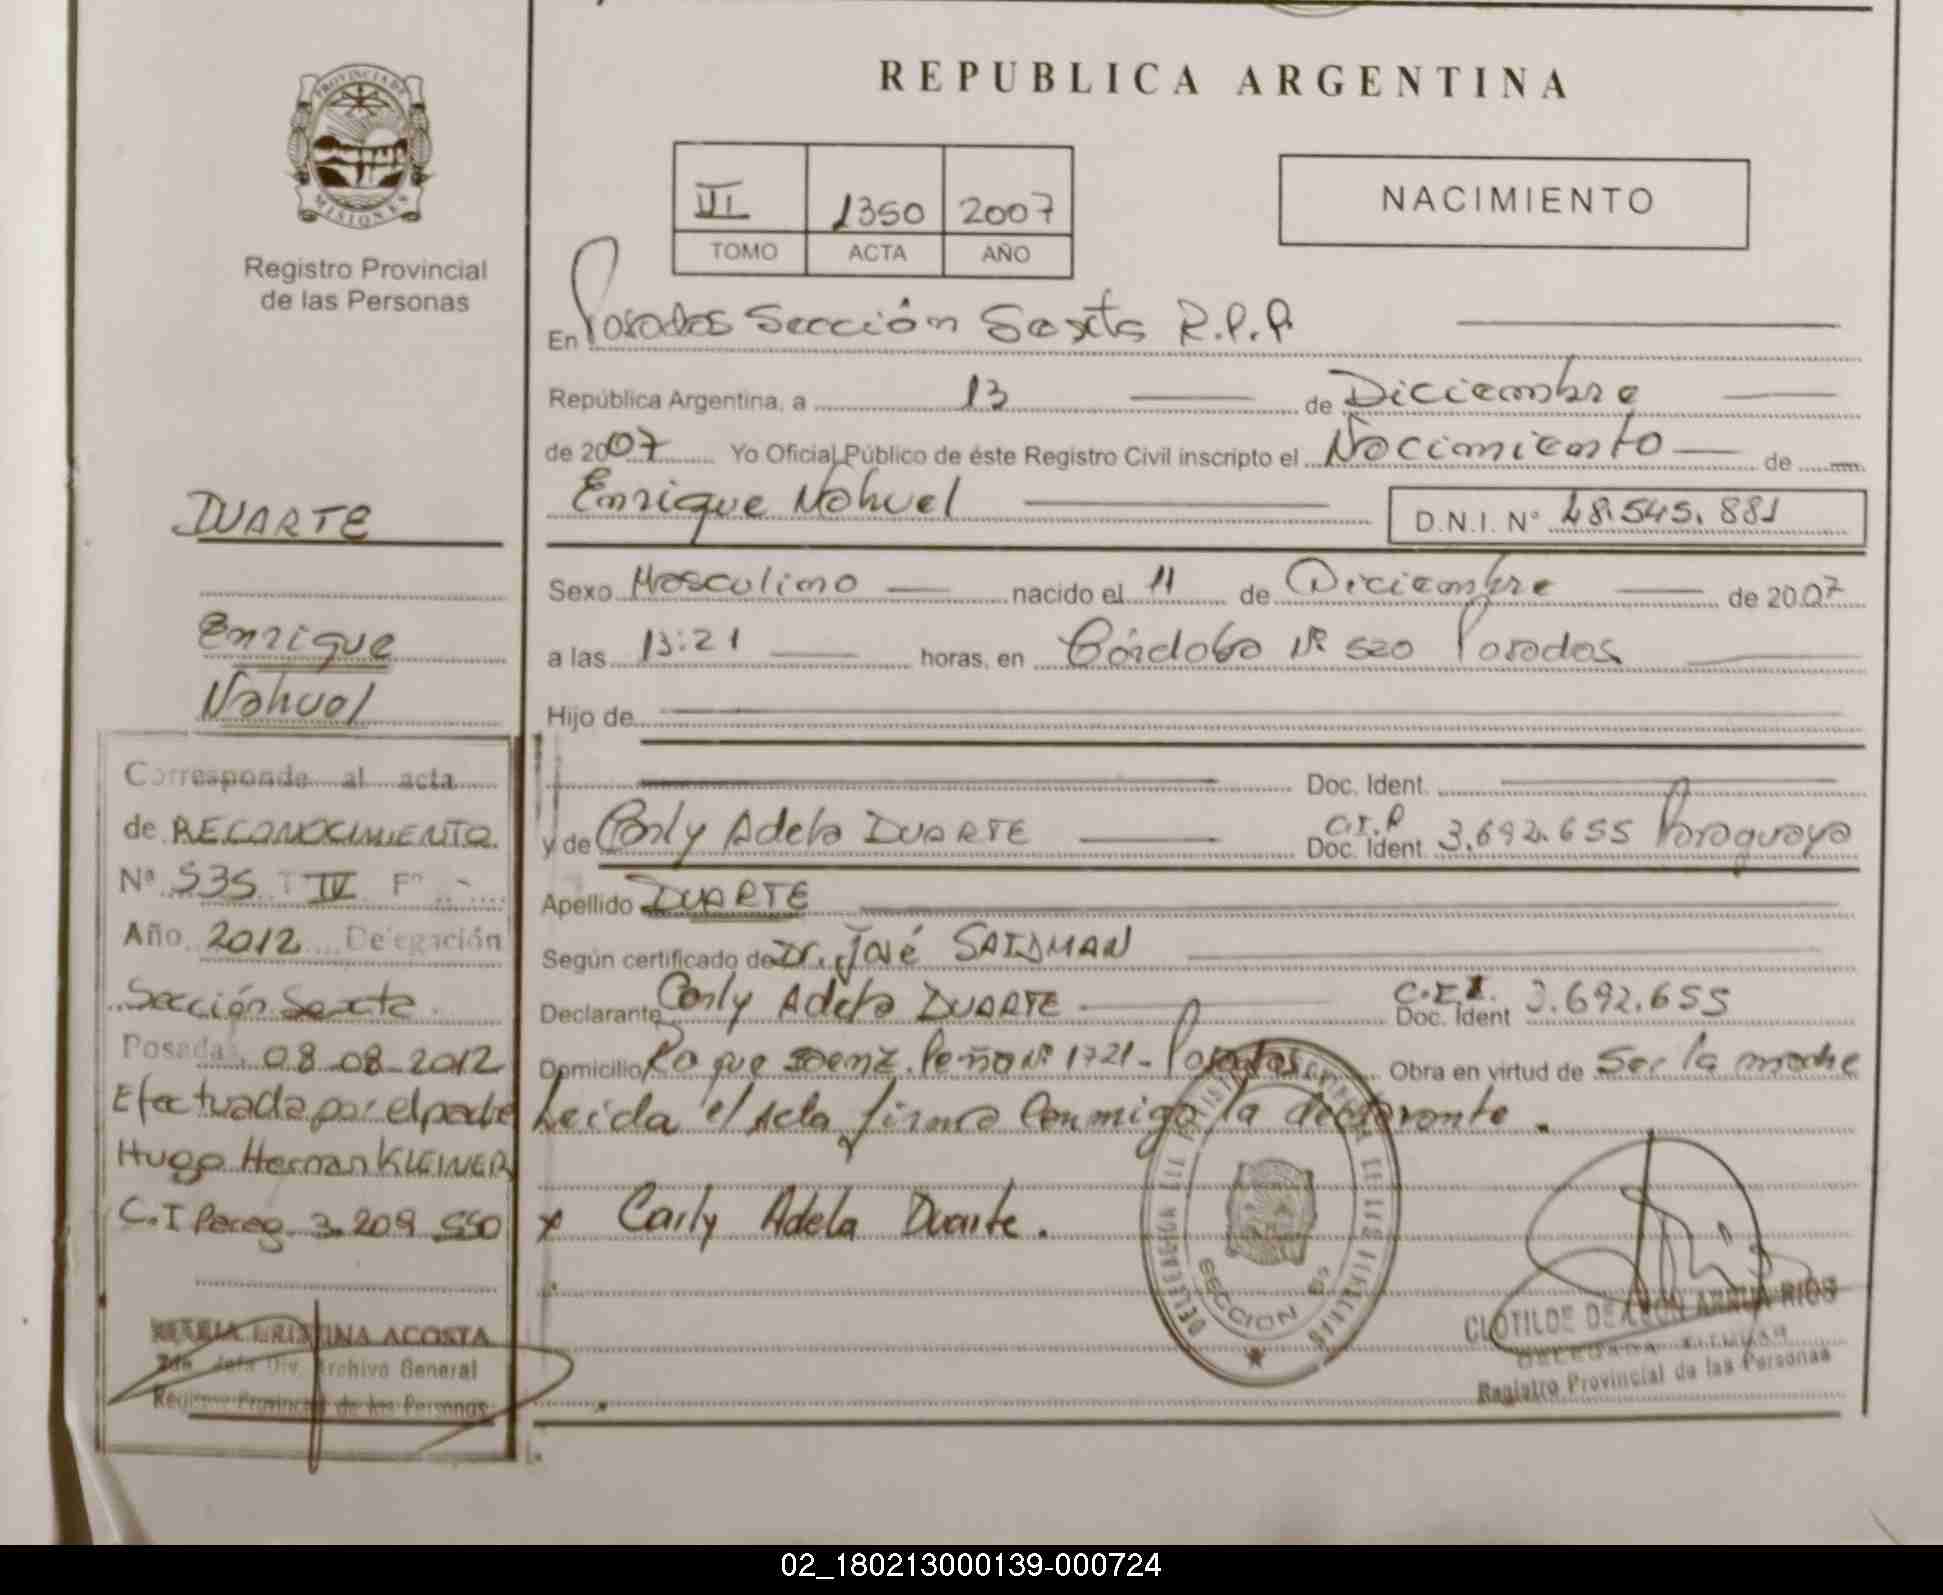 PROVINCIA DE
MISIONES
Registro Provincial
de las Personas
DUARTE
Enrique
Nahuel
Corresponde al acta
de RECONOCIMIENTO
Nº 535 T IV Fº
Año 2012 Delegación
Sección Sexta
Posadas, 08-08-2012
Efectuada por el padre
Hugo Hernan KLEINER
C.I Parag. 3.209.550
MARIA CRISTINA ACOSTA
2da. Jefa Div. Archivo General
Registro Provincial de las Personas
REPUBLICA ARGENTINA
III 1350 2007
TOMO ACTA AÑO
NACIMIENTO
En Posadas Sección Sexta R.P.P
República Argentina, a 13 de Diciembre
de 2007 Yo Oficial Público de éste Registro Civil inscripto el Nacimiento de
Enrique Nahuel D.N.I. Nº 48.545.881
Sexo Masculino nacido el 11 de Diciembre de 2007
a las 13:21 horas, en Córdoba Nº 520 Posadas
Hijo de
Doc. Ident.
y de Carly Adela DUARTE C.I.P Doc. Ident. 3.692.655 Paraguaya
Apellido DUARTE
Según certificado de Dr. José SAIDMAN
Declarante Carly Adela DUARTE Doc. Ident 3.692.655
Domicilio Roque Saenz Peña Nº 1721 - Posadas Obra en virtud de Ser la madre
Leida el acta firma conmigo la declarante.
x Carly Adela Duarte.
SECCION 6ª
CLOTILDE RIOS
DELEGADA TITULAR
Registro Provincial de las Personas
02_180213000139-000724